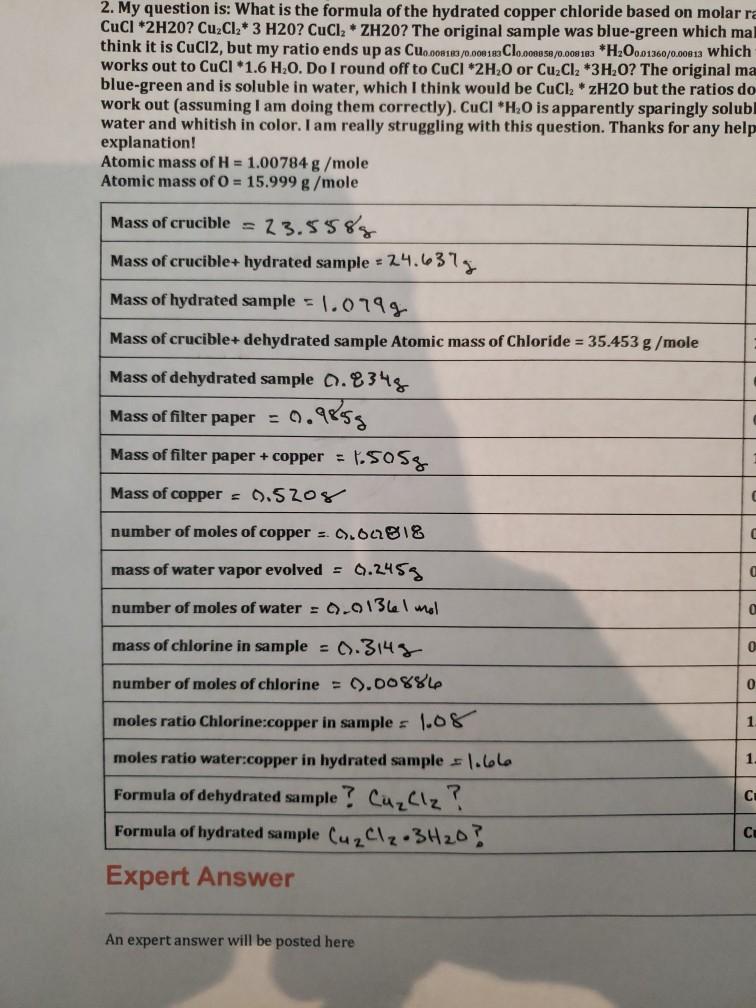 2. My question is: What is the formula of the hydrated copper chloride based on molar
CuCl *2H20? Cu₂Cl₂* 3 H20? CuCl₂ * ZH20? The original sample was blue-green which
think it is CuCl2, but my ratio ends up as Cu₀.₀₀₈₁₈₃/₀.₀₀₈₁₈₃Cl₀.₀₀₈₈₅₈/₀.₀₀₈₁₈₃ *H₂O₀.₀₁₃₆₀/₀.₀₀₈₁₃ which
works out to CuCl *1.6 H₂O. Do I round off to CuCl *2H₂O or Cu₂Cl₂ *3H₂O? The original
blue-green and is soluble in water, which I think would be CuCl₂ * zH20 but the ratios
work out (assuming I am doing them correctly). CuCl *H₂O is apparently sparingly
water and whitish in color. I am really struggling with this question. Thanks for any help
explanation!
Atomic mass of H = 1.00784 g /mole
Atomic mass of O = 15.999 g /mole
Mass of crucible = 23.558g
Mass of crucible+ hydrated sample = 24.637g
Mass of hydrated sample = 1.079g
Mass of crucible+ dehydrated sample Atomic mass of Chloride = 35.453 g /mole
Mass of dehydrated sample 0.834g
Mass of filter paper = 0.985g
Mass of filter paper + copper = 1.505g
Mass of copper = 0.520g
number of moles of copper = 0.00818
mass of water vapor evolved = 0.245g
number of moles of water = 0.01361 mol
mass of chlorine in sample = 0.314g
number of moles of chlorine = 0.00886
moles ratio Chlorine:copper in sample = 1.08
moles ratio water:copper in hydrated sample = 1.66
Formula of dehydrated sample ? Cu₂Cl₂ ?
Formula of hydrated sample Cu₂Cl₂•3H₂O?
Expert Answer
An expert answer will be posted here